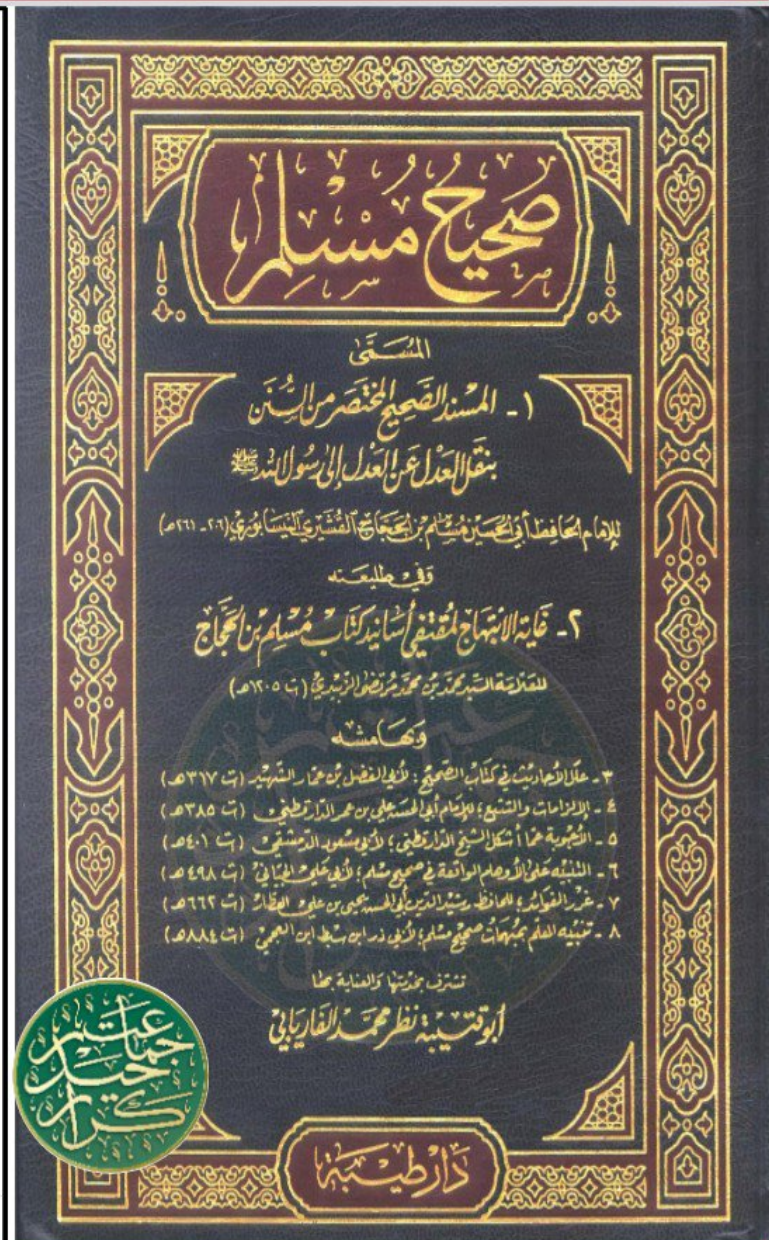 صَحِيحُ مُسْلِم
المُسَمَّى
١- المسند الصَّحِيح المختصَر من السُّنَن
بنقل العدل عَن العدل إلى رسول الله ﷺ
للإمام الحافظ أبي الحسين مسلم بن الحجاج القشيري النيسابوري (٢٠٦-٢٦١هـ)
وَفي طليعته
٢- غاية الابتهاج لمقتفي أسانيد كتاب مسلم بن الحجاج
للعلامة السيد محمد بن محمد مرتضى الزبيدي (ت ١٢٠٥هـ)
وَبهَامشه
٣- علل الأحاديث في كتاب الصحيح؛ لأبي الفضل بن عمار الشهيد (ت ٣١٧هـ)
٤- الإلزامات والتتبع؛ للإمام أبي الحسن علي بن عمر الدارقطني (ت ٣٨٥هـ)
٥- الأجوبة عما أشكل الشيخ الدارقطني؛ لأبي مسعود الدمشقي (ت ٤٠١هـ)
٦- التنبيه على الأوهام الواقعة في صحيح مسلم؛ لأبي علي الجياني (ت ٤٩٨هـ)
٧- غرر الفوائد؛ للحافظ رشيد الدين أبي الحسن يحيى بن علي العطار (ت ٦٦٢هـ)
٨- تنبيه المعلم بمبهمات صحيح مسلم؛ لأبي ذر ابن سبط ابن العجمي (ت ٨٨٤هـ)
تشرف بخدمتها والعناية بها
أبو قتيبة نظر محمد الفاريابي
حيدر كرار
دَار طيبَة